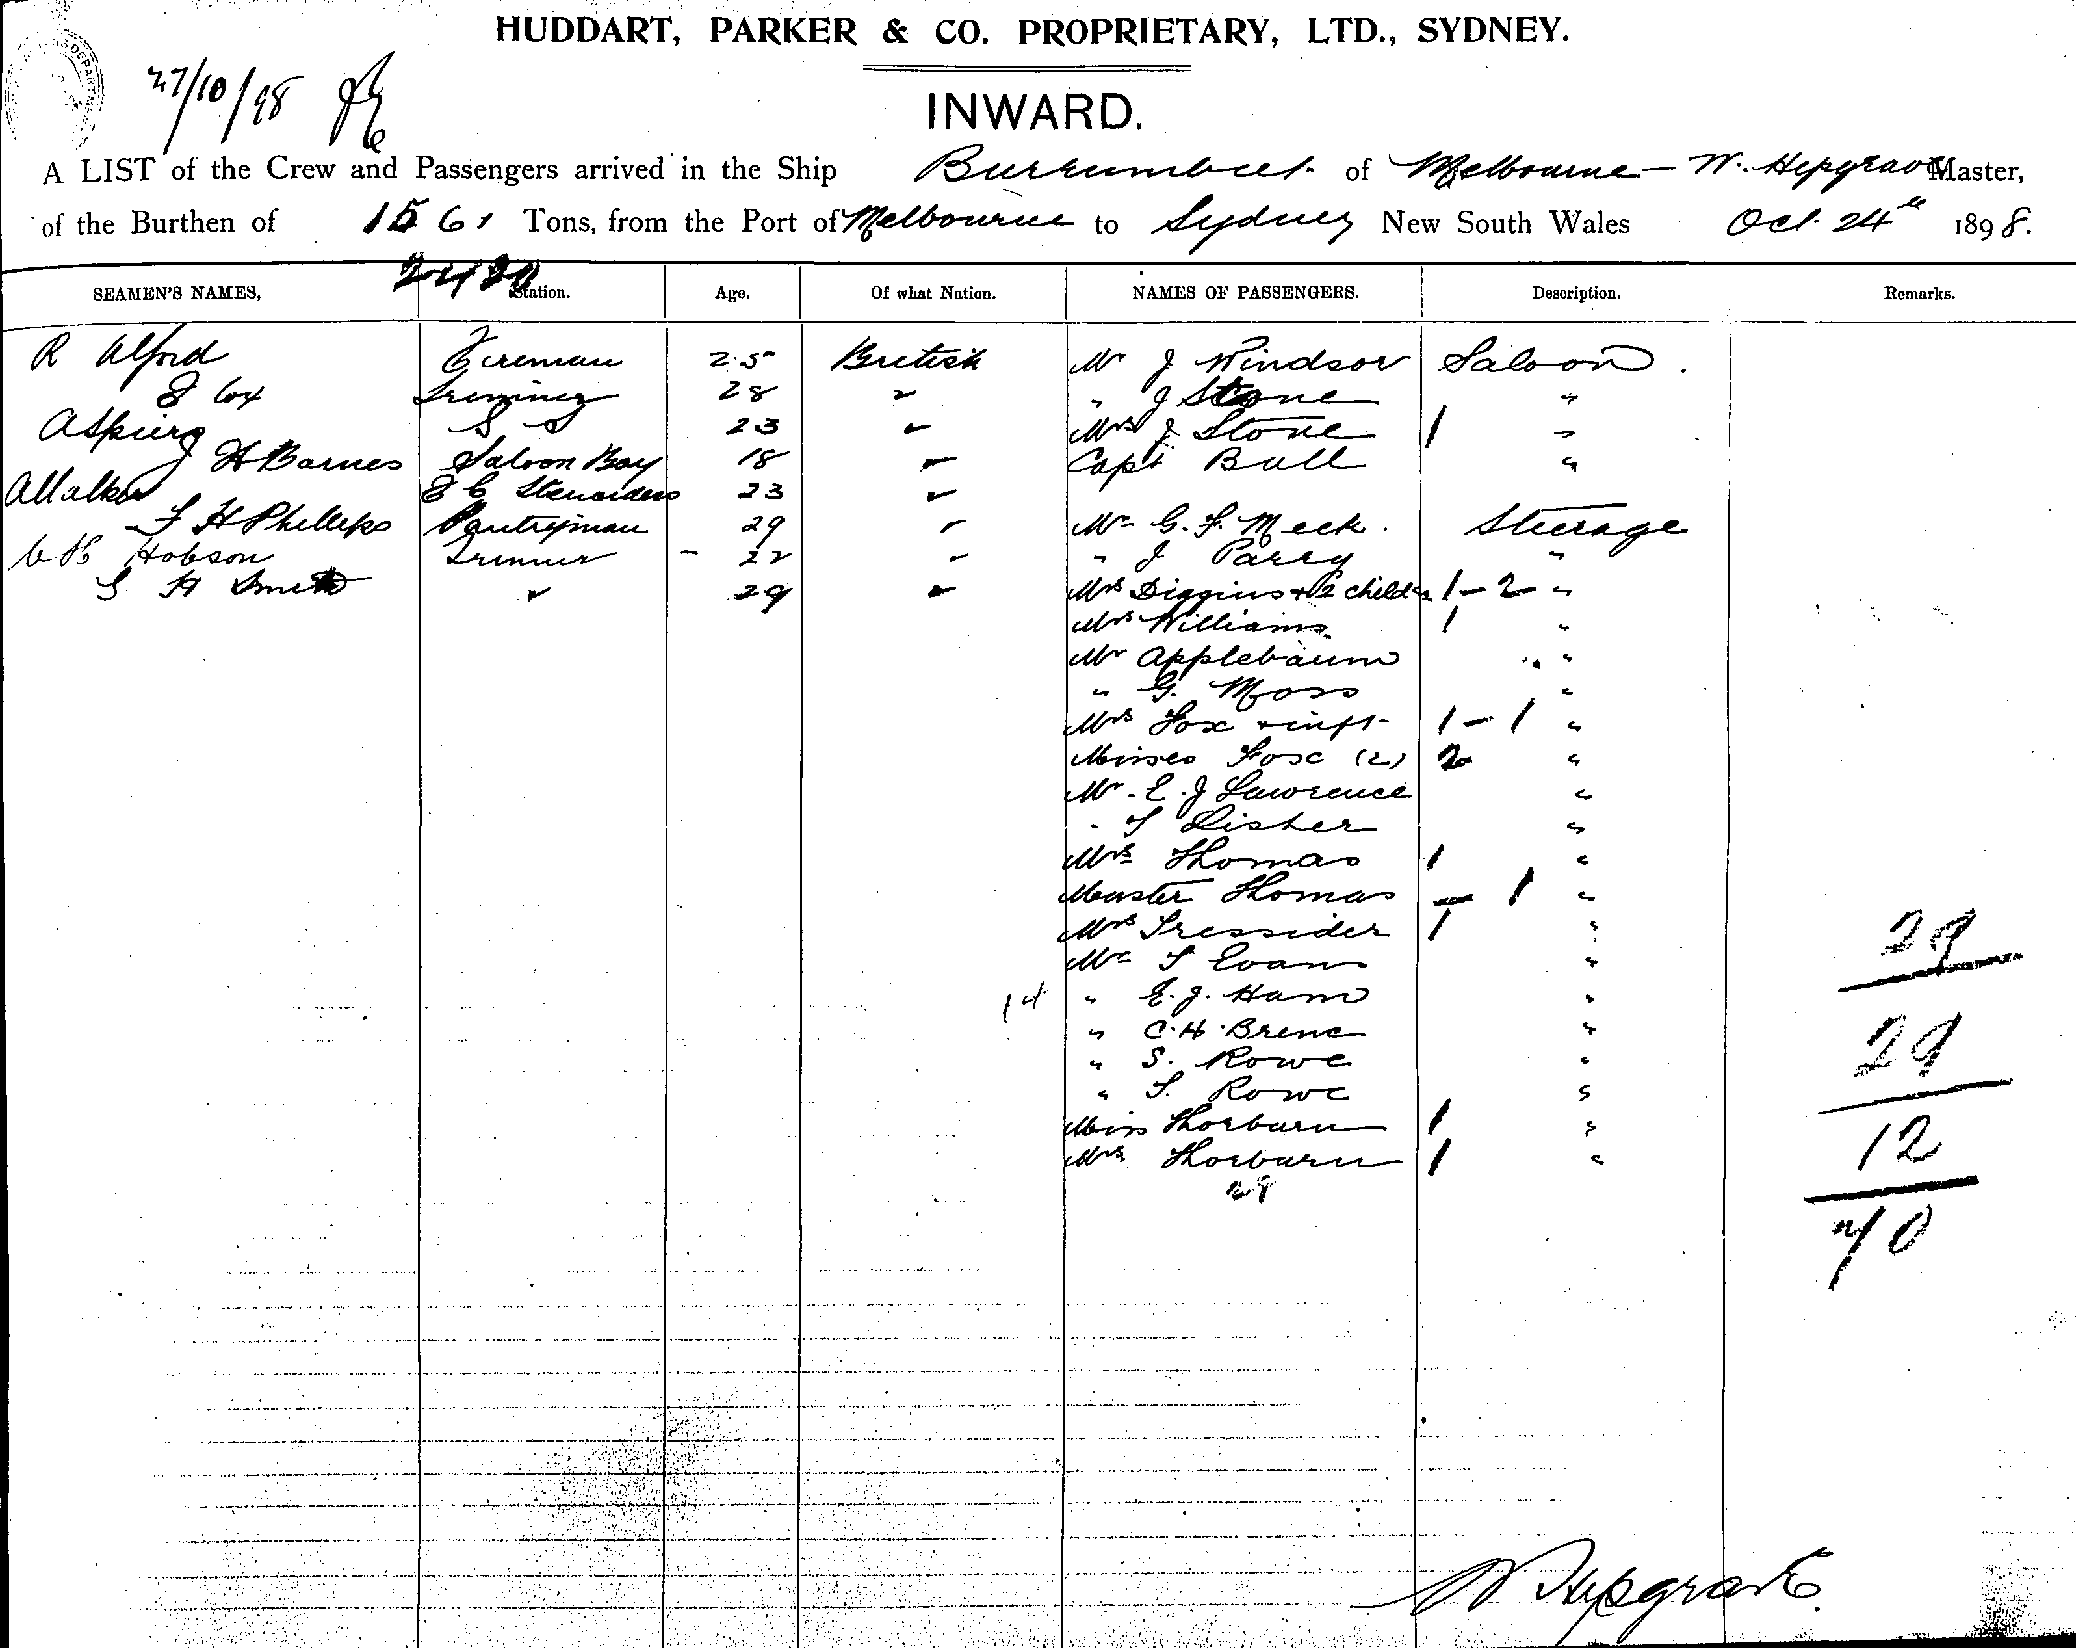 HUDDART, PARKER & CO. PROPRIETARY, LTD., SYDNEY.
27/10/98
INWARD.
A LIST of the Crew and Passengers arrived in the Ship Burrumbeet of Melbourne - W. Hepgrave Master,
of the Burthen of 1561 Tons, from the Port of Melbourne to Sydney New South Wales Oct. 24th 1898.
2420
SEAMEN'S NAMES, Station. Age. Of what Nation. NAMES OF PASSENGERS. Description. Remarks.
R Alford Fireman 25 British Mr J Windsor Saloon
Cox Trimmer 28 " " J Stone "
A Spiers S S 23 " Mrs J Stone 1 "
J H Barnes Saloon Boy 18 " Capt Bull "
A Walker F C Stewardess 23 "
F H Phillips Pantryman 29 " Mr G. F. Meek. Steerage
Hobson Trimmer - 22 " " J Parry "
S H Smith " 29 " Mrs Diggins + 2 childn 1 - 2 "
Mrs Williams 1 "
Mr Applebaum "
" G. Moss "
Mrs Fox + inft 1 - 1 "
Misses Fox (2) 2 "
Mr E. J Lawrence "
" T Lister "
Mrs Thomas 1 "
Master Thomas - 1 "
Mrs Tressider 1 "
Mr T Evans "
14 " E. J. Ham "
" C. H. Brene "
" S. Rowe "
" T. Rowe "
Miss Thorburn 1 "
Mrs Thorburn 1 "
28
29
29
12
70
W Hepgrave